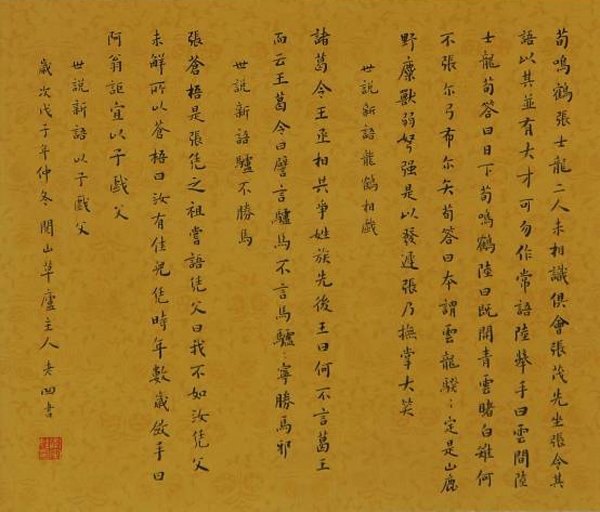 荀鳴鶴張士龍二人未相識俱會張茂先坐張令其
語以其並有大才可勿作常語陸舉手曰雲間陸
士龍荀答曰日下荀鳴鶴陸曰既開青雲睹白雉何
不張尔弓布尔矢荀答曰本謂雲龍騤:定是山鹿
野麋獸弱弩强是以發遲張乃撫掌大笑
世説新語龍鶴相戯
諸葛令王丞相共爭姓族先後王曰何不言葛王
而云王葛令曰譬言驢馬不言馬驢:寧勝馬邪
世説新語驢不勝馬
張蒼梧是張凭之祖嘗語凭父曰我不如汝凭父
未解所以蒼梧曰汝有佳兒凭時年數歲斂手曰
阿翁詎宜以子戯父
世説新語以子戯父
歲次戊子年仲冬関山草廬主人老四書